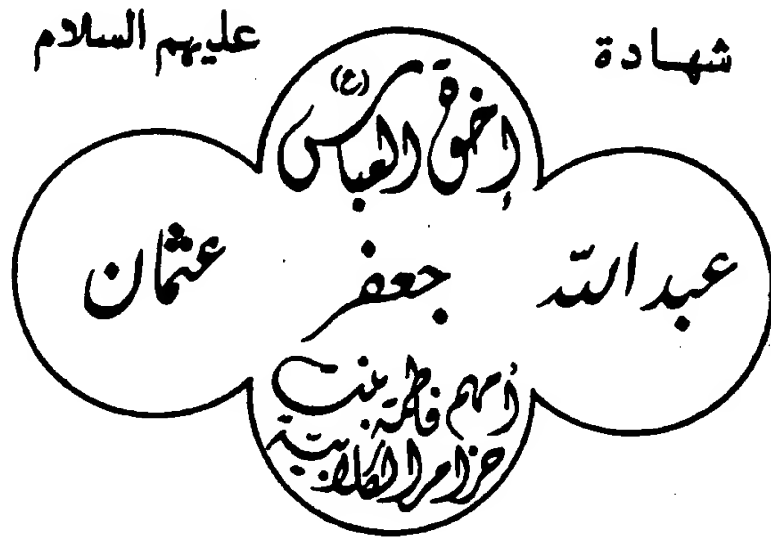 شهادة
عليهم السلام
إخوة العباس (ع)
عبد الله
جعفر
عثمان
أمهم فاطمة بنت
حزام الكلابية